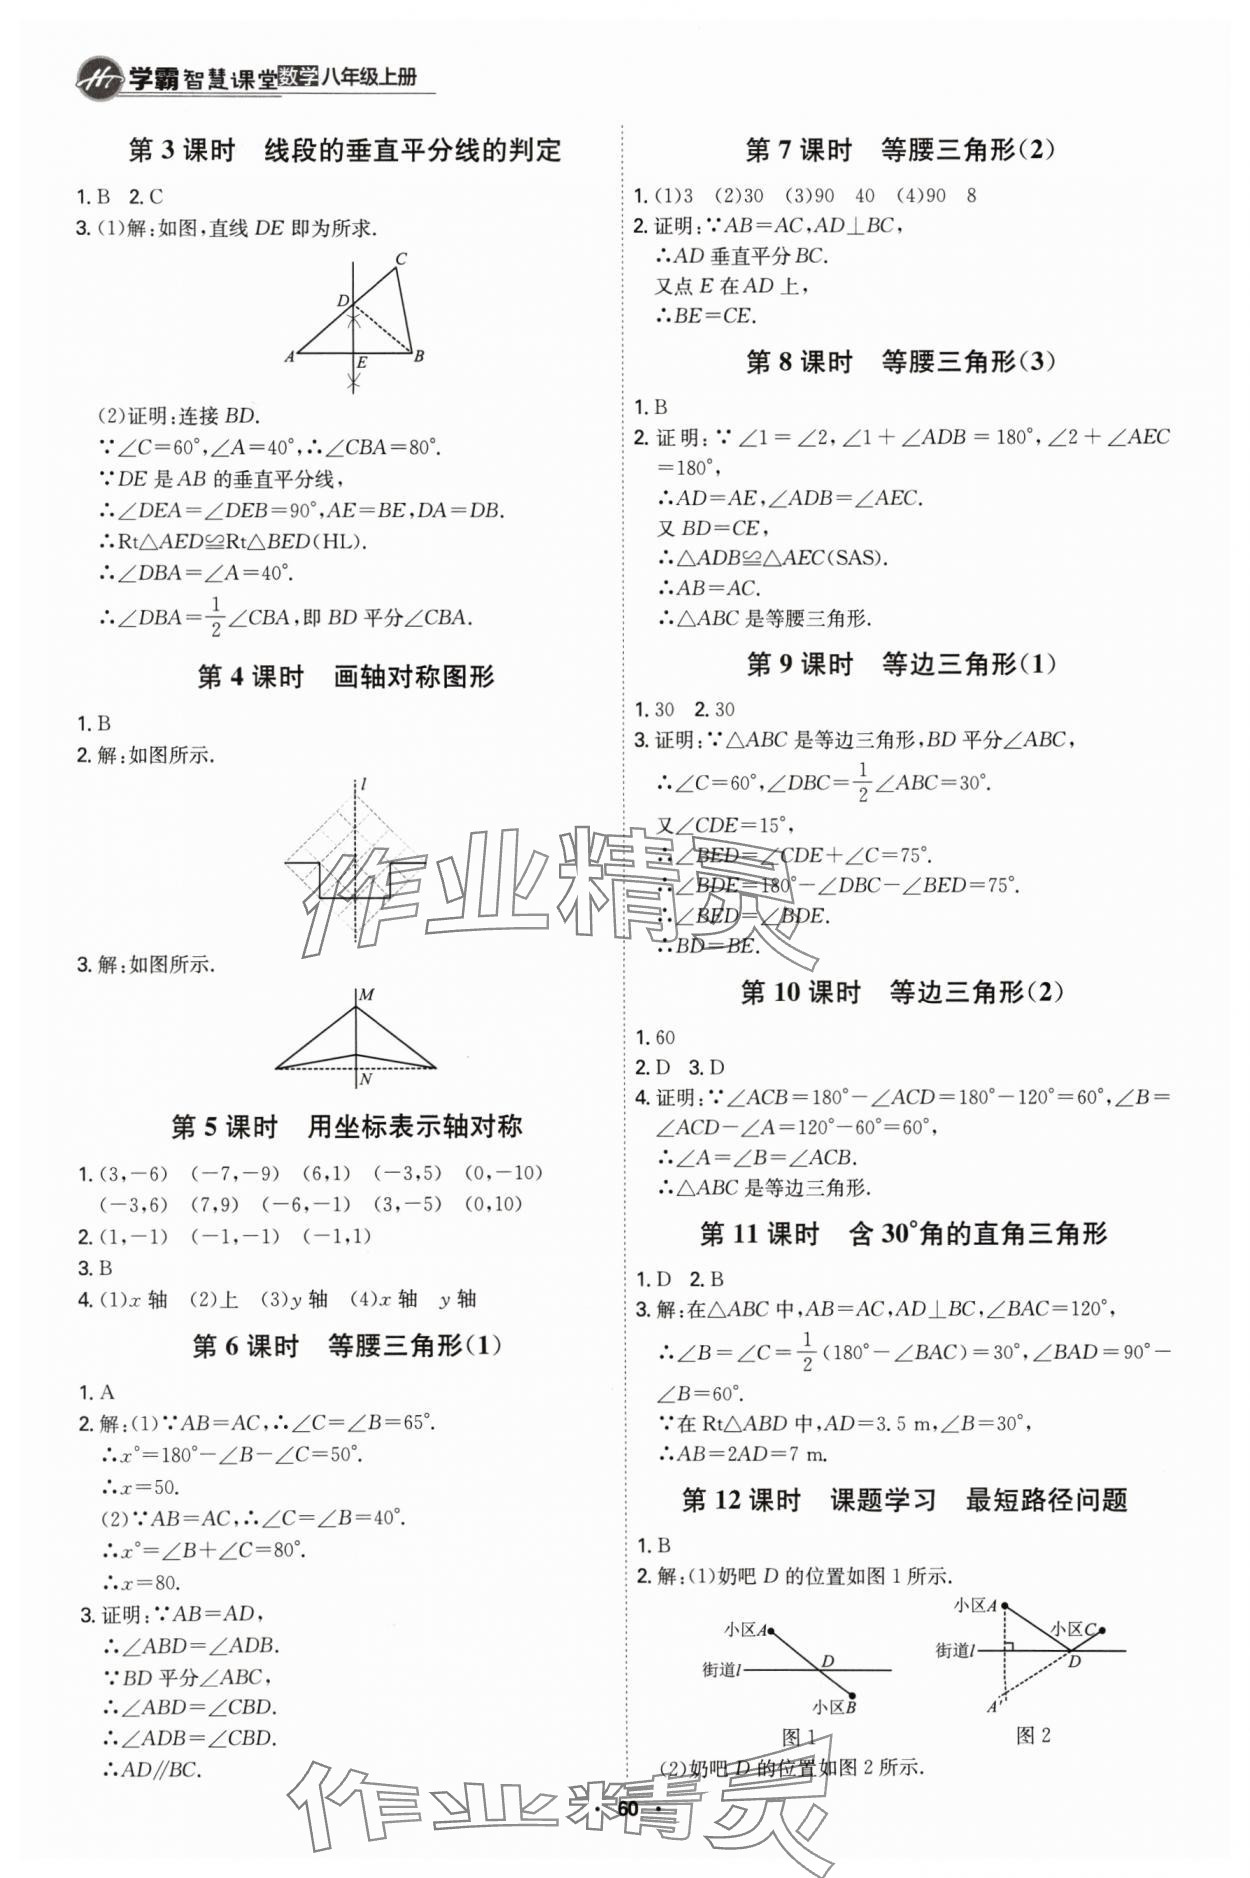 学霸智慧课堂数学八年级上册
第3课时 线段的垂直平分线的判定
1. B 2. C
3. (1)解:如图,直线 DE 即为所求.
C
D
A
E
B
(2)证明:连接 BD.
∵∠C=60°,∠A=40°,∴∠CBA=80°.
∵DE 是 AB 的垂直平分线,
∴∠DEA=∠DEB=90°,AE=BE,DA=DB.
∴Rt△AED≌Rt△BED(HL).
∴∠DBA=∠A=40°.
∴∠DBA=1/2∠CBA,即 BD 平分∠CBA.
第4课时 画轴对称图形
1. B
2. 解:如图所示.
l
3. 解:如图所示.
M
N
第5课时 用坐标表示轴对称
1. (3,-6) (-7,-9) (6,1) (-3,5) (0,-10)
(-3,6) (7,9) (-6,-1) (3,-5) (0,10)
2. (1,-1) (-1,-1) (-1,1)
3. B
4. (1)x 轴 (2)上 (3)y 轴 (4)x 轴 y 轴
第6课时 等腰三角形(1)
1. A
2. 解:(1)∵AB=AC,∴∠C=∠B=65°.
∴x°=180°-∠B-∠C=50°.
∴x=50.
(2)∵AB=AC,∴∠C=∠B=40°.
∴x°=∠B+∠C=80°.
∴x=80.
3. 证明:∵AB=AD,
∴∠ABD=∠ADB.
∵BD 平分∠ABC,
∴∠ABD=∠CBD.
∴∠ADB=∠CBD.
∴AD//BC.
第7课时 等腰三角形(2)
1. (1)3 (2)30 (3)90 40 (4)90 8
2. 证明:∵AB=AC,AD⊥BC,
∴AD 垂直平分 BC.
又点 E 在 AD 上,
∴BE=CE.
第8课时 等腰三角形(3)
1. B
2. 证明:∵∠1=∠2,∠1+∠ADB=180°,∠2+∠AEC
=180°,
∴AD=AE,∠ADB=∠AEC.
又 BD=CE,
∴△ADB≌△AEC(SAS).
∴AB=AC.
∴△ABC 是等腰三角形.
第9课时 等边三角形(1)
1. 30 2. 30
3. 证明:∵△ABC 是等边三角形,BD 平分∠ABC,
∴∠C=60°,∠DBC=1/2∠ABC=30°.
又∠CDE=15°,
∴∠BED=∠CDE+∠C=75°.
∴∠BDE=180°-∠DBC-∠BED=75°.
∴∠BED=∠BDE.
∴BD=BE.
第10课时 等边三角形(2)
1. 60
2. D 3. D
4. 证明:∵∠ACB=180°-∠ACD=180°-120°=60°,∠B=
∠ACD-∠A=120°-60°=60°,
∴∠A=∠B=∠ACB.
∴△ABC 是等边三角形.
第11课时 含30°角的直角三角形
1. D 2. B
3. 解:在△ABC 中,AB=AC,AD⊥BC,∠BAC=120°,
∴∠B=∠C=1/2(180°-∠BAC)=30°,∠BAD=90°-
∠B=60°.
∵在 Rt△ABD 中,AD=3.5 m,∠B=30°,
∴AB=2AD=7 m.
第12课时 课题学习 最短路径问题
1. B
2. 解:(1)奶吧 D 的位置如图 1 所示.
小区A
街道l
D
小区B
图 1
小区A
小区C
街道l
D
A'
图 2
(2)奶吧 D 的位置如图 2 所示.
· 60 ·
作业精灵
作业精灵